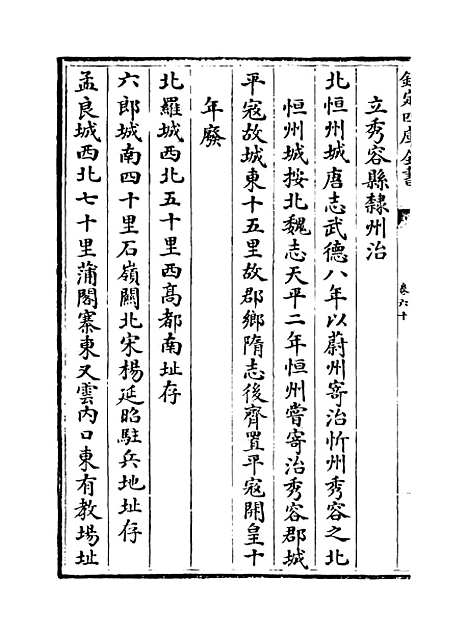 欽定四庫全書
卷六十
立秀容縣隸州治
北恒州城唐志武德八年以蔚州寄治忻州秀容之北
恒州城按北魏志天平二年恒州嘗寄治秀容郡城
平寇故城東十五里故郡鄉隋志後齊置平寇開皇十
年廢
北羅城西北五十里西高都南址存
六郎城南四十里石嶺關北宋楊延昭駐兵地址存
孟良城西北七十里蒲閣寨東又雲內口東有教場址